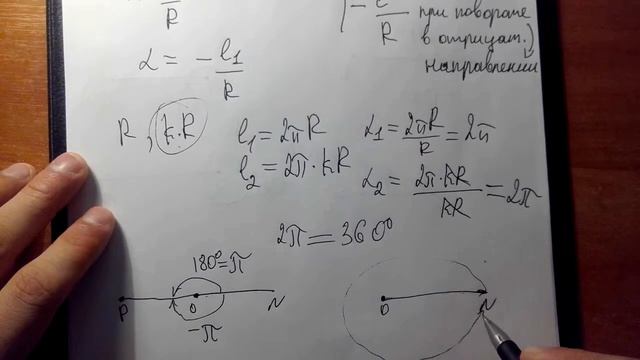 R
- ℓ/R при повороте
в отрицат.)
направлении
α = - ℓ1/R
R, k·R
ℓ1 = 2πR
α1 = 2πR/R = 2π
ℓ2 = 2π·kR
α2 = 2π·kR/kR = 2π
2π = 360°
180° = π
P O N
-π
O N